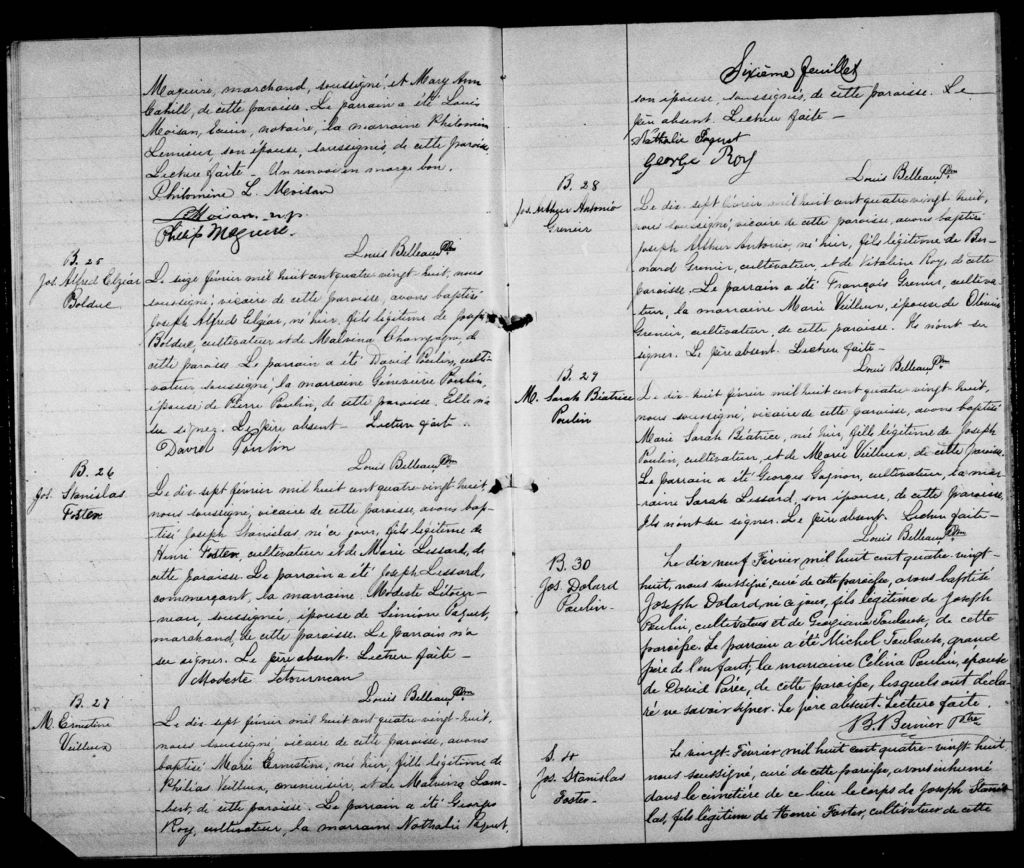 Maguire, marchand, soussigné, et Mary Ann
Cahill, de cette paroisse. Le parrain a été Louis
Moisan, Ecuier, notaire, la marraine Philomène
Lemieux son épouse, soussignés, de cette paroisse.
Lecture faite - Un renvoi en marge bon.
Philomène L. Moisan
L. Moisan n.p.
Philip Maguire.
Louis Belleau Ptre
B. 25
Jos. Alfred Elzéar
Bolduc
Le seize février mil huit cent quatre vingt huit, nous
soussigné, vicaire de cette paroisse, avons baptisé
Joseph Alfred Elzéar, né hier, fils légitime de Joseph
Bolduc, cultivateur et de Malvina Champagne, de
cette paroisse. Le parrain a été David Poulin, culti-
vateur soussigné, la marraine Géneviève Poulin,
épouse de Pierre Poulin, de cette paroisse. Elle n'a
su signer. Le père absent - Lecture faite -
David Poulin
Louis Belleau Ptre
B. 26
Jos. Stanislas
Foster
Le dix sept février mil huit cent quatre-vingt-huit,
nous soussigné, vicaire de cette paroisse, avons bap-
tisé Joseph Stanislas, né ce jour, fils légitime de
Henri Foster, cultivateur et de Marie Lessard, de
cette paroisse. Le parrain a été Joseph Lessard,
commerçant, la marraine Modeste Létour-
neau, soussignée, épouse de Siméon Paquet,
marchand, de cette paroisse. Le parrain n'a
su signer. Le père absent. Lecture faite -
Modeste Letourneau
Louis Belleau, Ptre
B. 27
M. Ernestine
Veilleux
Le dix-sept février mil huit cent quatre-vingt-huit,
nous soussigné vicaire de cette paroisse, avons
baptisé Marie Ernestine, née hier, fille légitime de
Philias Veilleux, menuisier, et de Malvina Lam-
bert, de cette paroisse. Le parrain a été Georges
Roy, cultivateur, la marraine Nathalie Paquet,
Sixième feuillet
son épouse, soussignés, de cette paroisse. Le
père absent. Lecture faite -
Nathalie Paquet
George Roy
Louis Belleau, Ptre
B. 28
Jos. Arthur Antonio
Grenier
Le dix-sept février mil huit cent quatre vingt huit,
nous soussigné, vicaire de cette paroisse, avons baptisé
Joseph Arthur Antonio, né hier, fils légitime de Ber-
nard Grenier, cultivateur, et de Vitaline Roy, de cette
paroisse. Le parrain a été François Grenier, cultiva-
teur, la marraine Marie Veilleux, épouse de
Grenier, cultivateur, de cette paroisse. Ils n'ont su
signer. Le père absent. Lecture faite -
Louis Belleau Ptre
B. 29
M. Sarah Béatrice
Poulin
Le dix-huit février mil huit cent quatre-vingt-huit,
nous soussigné, vicaire de cette paroisse, avons baptisé
Marie Sarah Béatrice, née hier, fille légitime de Joseph
Poulin, cultivateur, et de Marie Veilleux, de cette paroisse.
Le parrain a été Georges Gagnon, cultivateur, la mar-
raine Sarah Lessard, son épouse, de cette paroisse.
Ils n'ont su signer. Le père absent. Lecture faite -
Louis Belleau, Ptre
B. 30
Jos. Dolard
Poulin
Le dix neuf Février mil huit cent quatre-vingt-
huit, nous soussigné, curé de cette paroisse, avons baptisé
Joseph Dolard, né ce jour, fils légitime de Joseph
Poulin, cultivateur et de Georgiana Toulouse, de cette
paroisse. Le parrain a été Michel Toulouse, grand
père de l'enfant, la marraine Célina Poulin, épouse
de David Parée, de cette paroisse, lesquels ont décla-
ré ne savoir signer. Le père absent. Lecture faite.
B. Bernier Ptre
S. 4
Jos. Stanislas
Foster
Le vingt Février mil huit cent quatre-vingt huit
nous soussigné, curé de cette paroisse, avons inhumé
dans le cimetière de ce lieu le corps de Joseph Stanis-
las, fils légitime de Henri Foster, cultivateur de cette